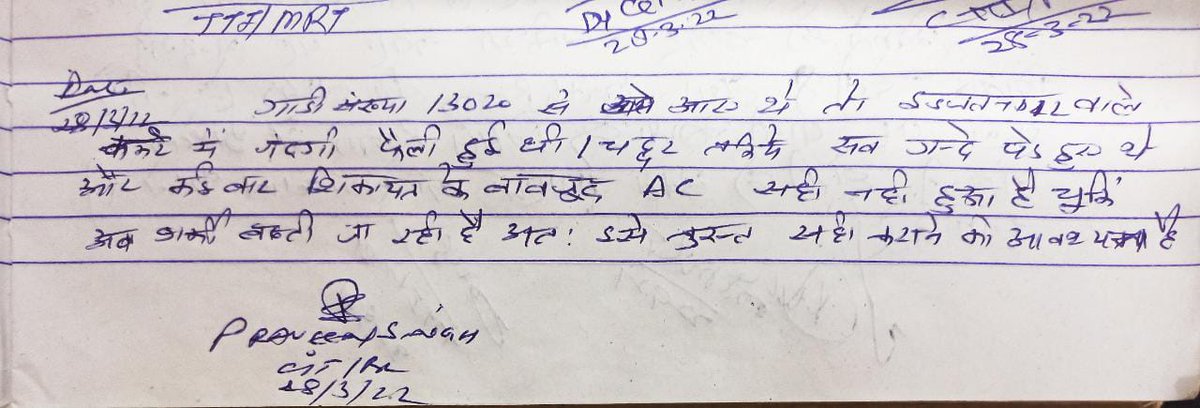 TTE/MRT
28.3.22
28-3-22
Date
28/3/22
गाडी संख्या 13020 से आए थे तो वाले
कमरे में गंदगी फैली हुई थी । चद्दर तकिये सब गन्दे पडे हुए थे
और कई बार शिकायत के बावजूद AC सही नही हुआ है चुकि
अब गर्मी बढती जा रही है अत: इसे तुरन्त सही कराने की आवश्यकता है
PRAVEEN SINGH
CIT/BE
28/3/22